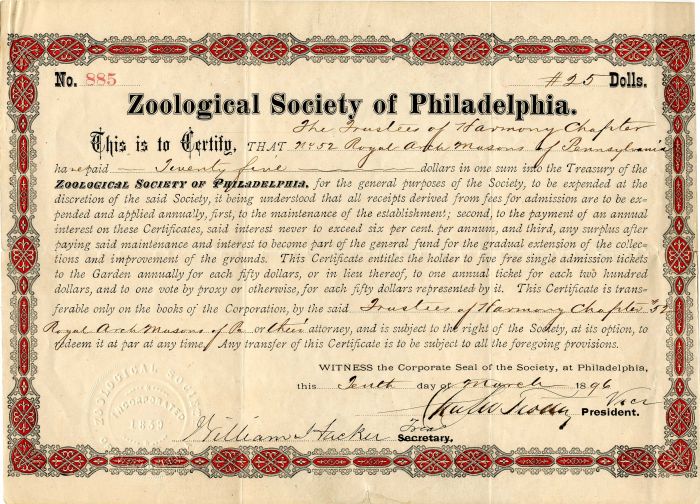 No. 885 #25 Dolls.
Zoological Society of Philadelphia.
The Trustees of Harmony Chapter
This is to Certify, THAT No 52 Royal Arch Masons of Pennsylvania
ha ve paid Twenty five dollars in one sum into the Treasury of the
ZOOLOGICAL SOCIETY OF PHILADELPHIA, for the general purposes of the Society, to be expended at the
discretion of the said Society, it being understood that all receipts derived from fees for admission are to be ex-
pended and applied annually, first, to the maintenance of the establishment; second, to the payment of an annual
interest on these Certificates, said interest never to exceed six per cent. per annum, and third, any surplus after
paying said maintenance and interest to become part of the general fund for the gradual extension of the collec-
tions and improvement of the grounds. This Certificate entitles the holder to five free single admission tickets
to the Garden annually for each fifty dollars, or in lieu thereof, to one annual ticket for each two hundred
dollars, and to one vote by proxy or otherwise, for each fifty dollars represented by it. This Certificate is trans-
ferable only on the books of the Corporation, by the said Trustees of Harmony Chapter #52
Royal Arch Masons of Pa or their attorney, and is subject to the right of the Society, at its option, to
redeem it at par at any time. Any transfer of this Certificate is to be subject to all the foregoing provisions.
WITNESS the Corporate Seal of the Society, at Philadelphia,
this Tenth day of March 1896
Vice
President.
William Hacker Treas
Secretary.
ZOOLOGICAL SOCIETY
INCORPORATED
1859